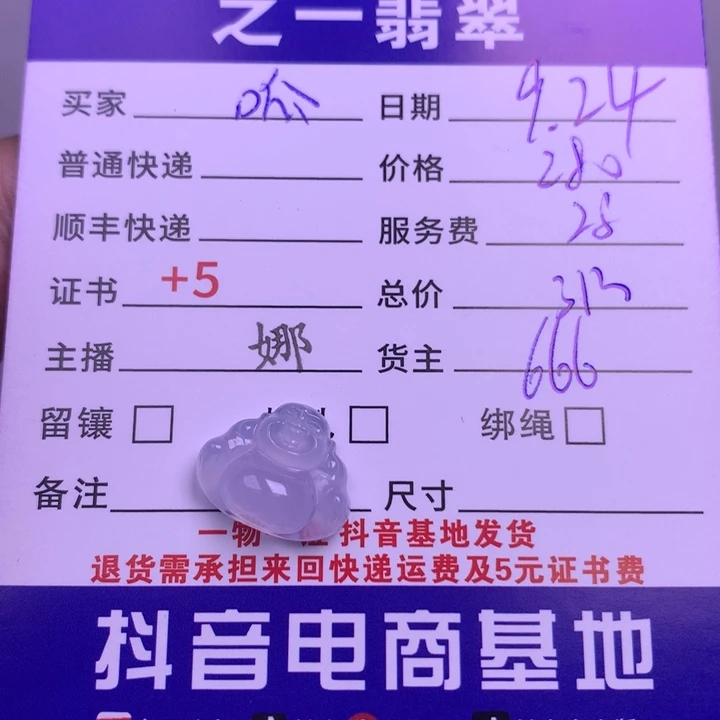 之一翡翠
买家 哈 日期 9.24
普通快递 价格 280
顺丰快递 服务费 28
证书 +5 总价 313
主播 娜 货主 666
留镶 绑绳
备注 尺寸
一物一 抖音基地发货
退货需承担来回快递运费及5元证书费
抖音电商基地